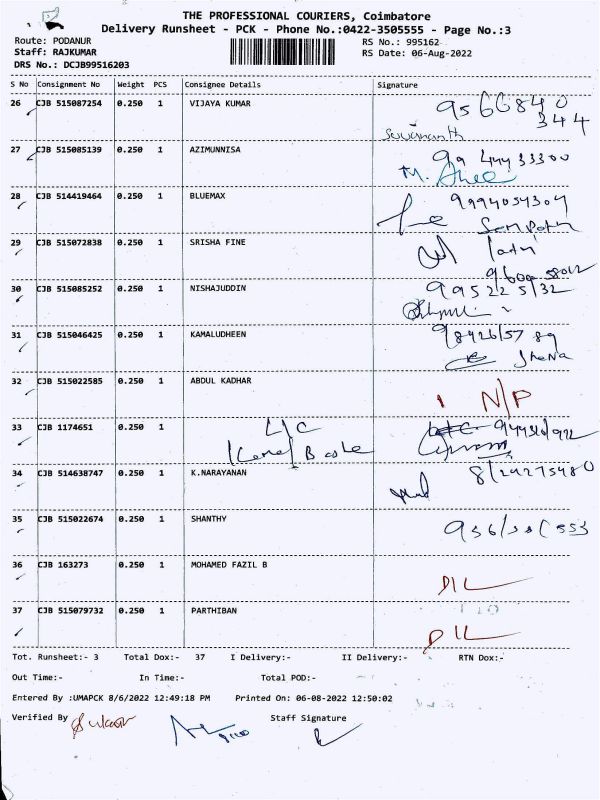 THE PROFESSIONAL COURIERS, Coimbatore
Delivery Runsheet - PCK - Phone No.:0422-3505555 - Page No.:3
Route: PODANUR RS No.: 995162
Staff: RAJKUMAR RS Date: 06-Aug-2022
DRS No.: DCJB99516203
S No Consignment No Weight PCS Consignee Details Signature
26 CJB 515087254 0.250 1 VIJAYA KUMAR 9566840
344
27 CJB 515085139 0.250 1 AZIMUNNISA
28 CJB 514419464 0.250 1 BLUEMAX 9994054304
29 CJB 515072838 0.250 1 SRISHA FINE
30 CJB 515085252 0.250 1 NISHAJUDDIN
31 CJB 515046425 0.250 1 KAMALUDHEEN
32 CJB 515022585 0.250 1 ABDUL KADHAR N/P
33 CJB 1174651 0.250 1
34 CJB 514638747 0.250 1 K.NARAYANAN
35 CJB 515022674 0.250 1 SHANTHY
36 CJB 163273 0.250 1 MOHAMED FAZIL B D/L
37 CJB 515079732 0.250 1 PARTHIBAN D/L
Tot. Runsheet:- 3 Total Dox:- 37 I Delivery:- II Delivery:- RTN Dox:-
Out Time:- In Time:- Total POD:-
Entered By :UMAPCK 8/6/2022 12:49:18 PM Printed On: 06-08-2022 12:50:02
Verified By Staff Signature